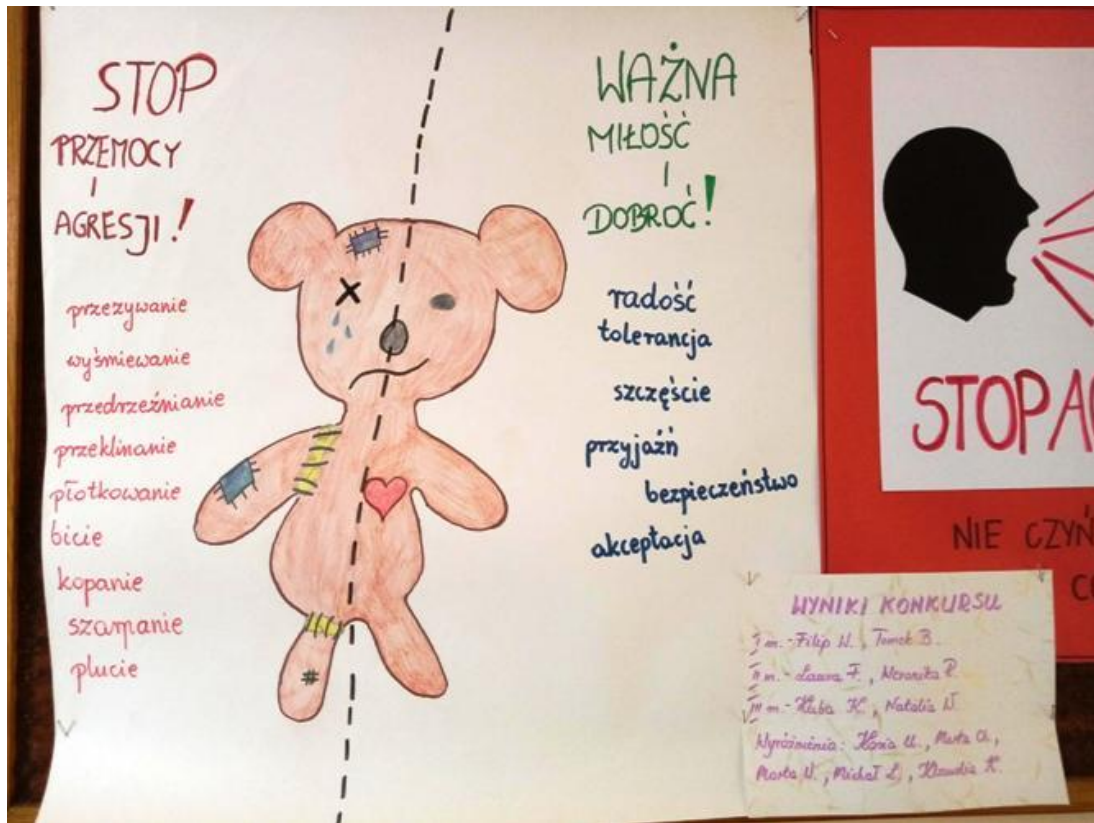 STOP
PRZEMOCY
I
AGRESJI!
przezywanie
wyśmiewanie
przedrzeźnianie
przeklinanie
płotkowanie
bicie
kopanie
szarpanie
plucie
WAŻNA
MIŁOŚĆ
I
DOBROĆ!
radość
tolerancja
szczęście
przyjaźń
bezpieczeństwo
akceptacja
STOP AG
NIE CZYŃ
CO
WYNIKI KONKURSU
I m. - Filip W., Tomek B.
II m. - Laura F., Weronika P.
III m. - Kuba K., Natalia W.
Wyróżnienia: Kasia U., Marta O.,
Marta W., Michał L., Klaudia K.